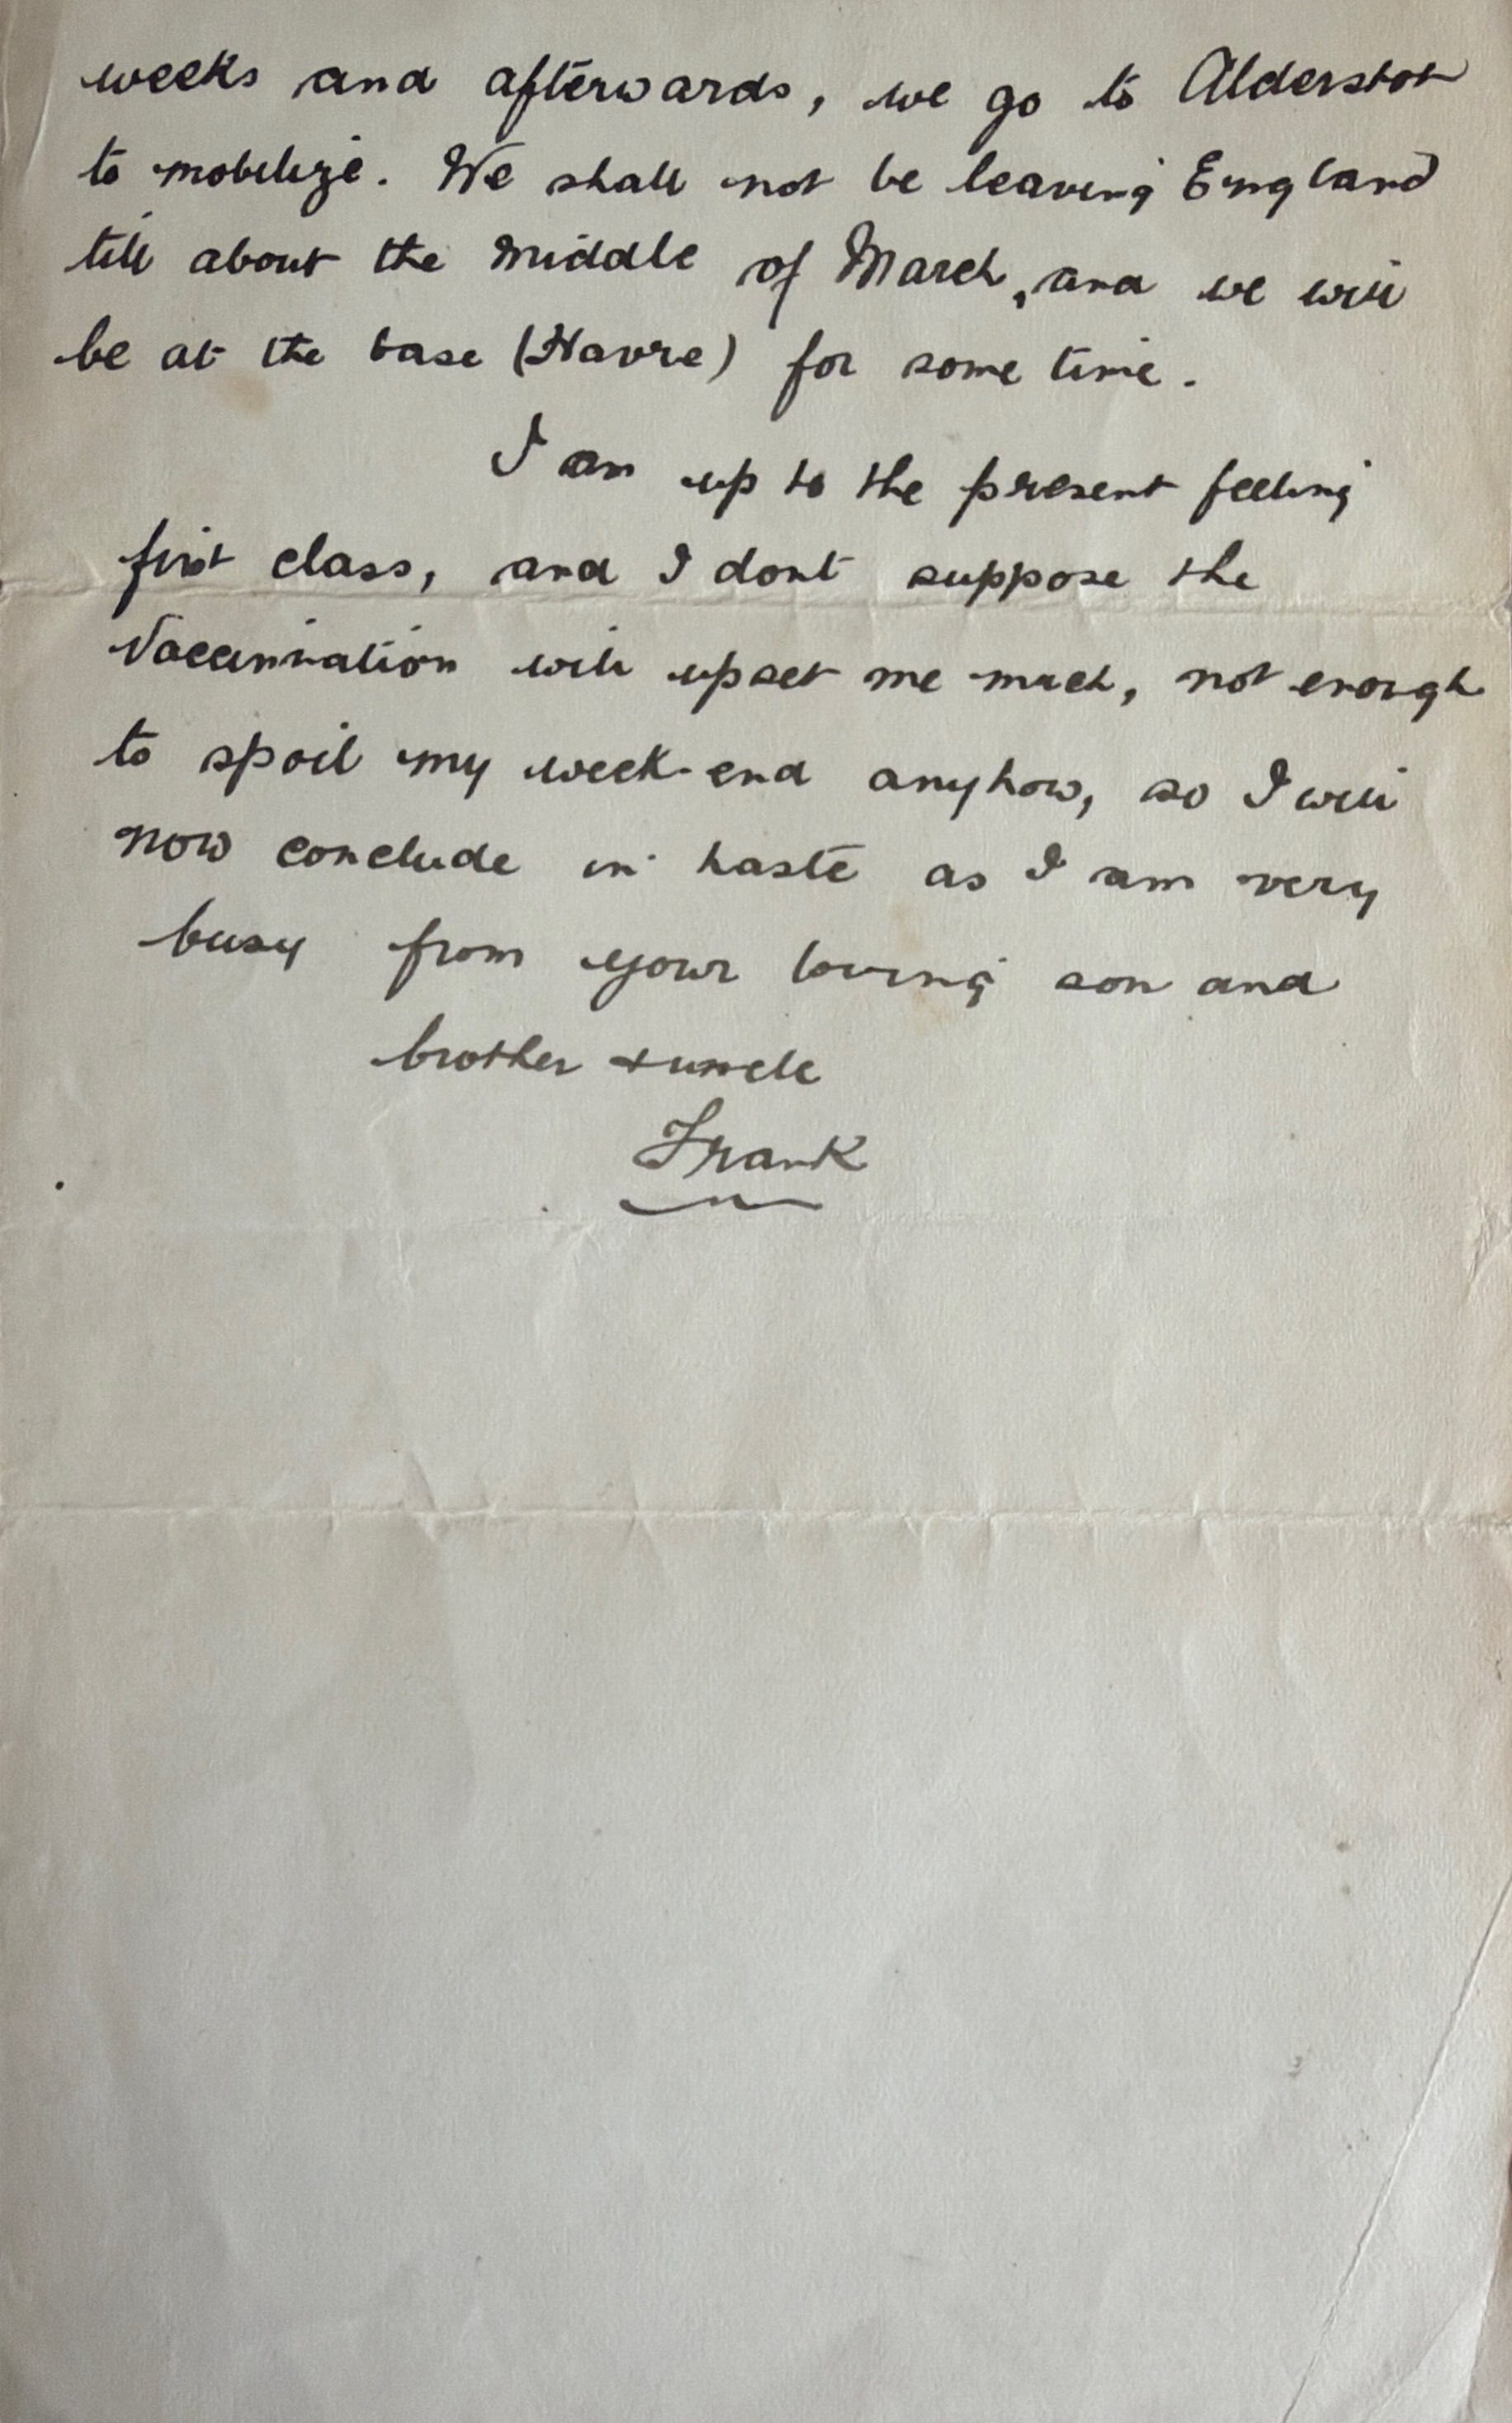 weeks and afterwards, we go to Aldershot
to mobilize. We shall not be leaving England
till about the middle of March, and we will
be at the base (Havre) for some time.
I am up to the present feeling
first class, and I dont suppose the
Vaccination will upset me much, not enough
to spoil my week-end anyhow, so I will
now conclude in haste as I am very
busy from your loving son and
brother + uncle
Frank